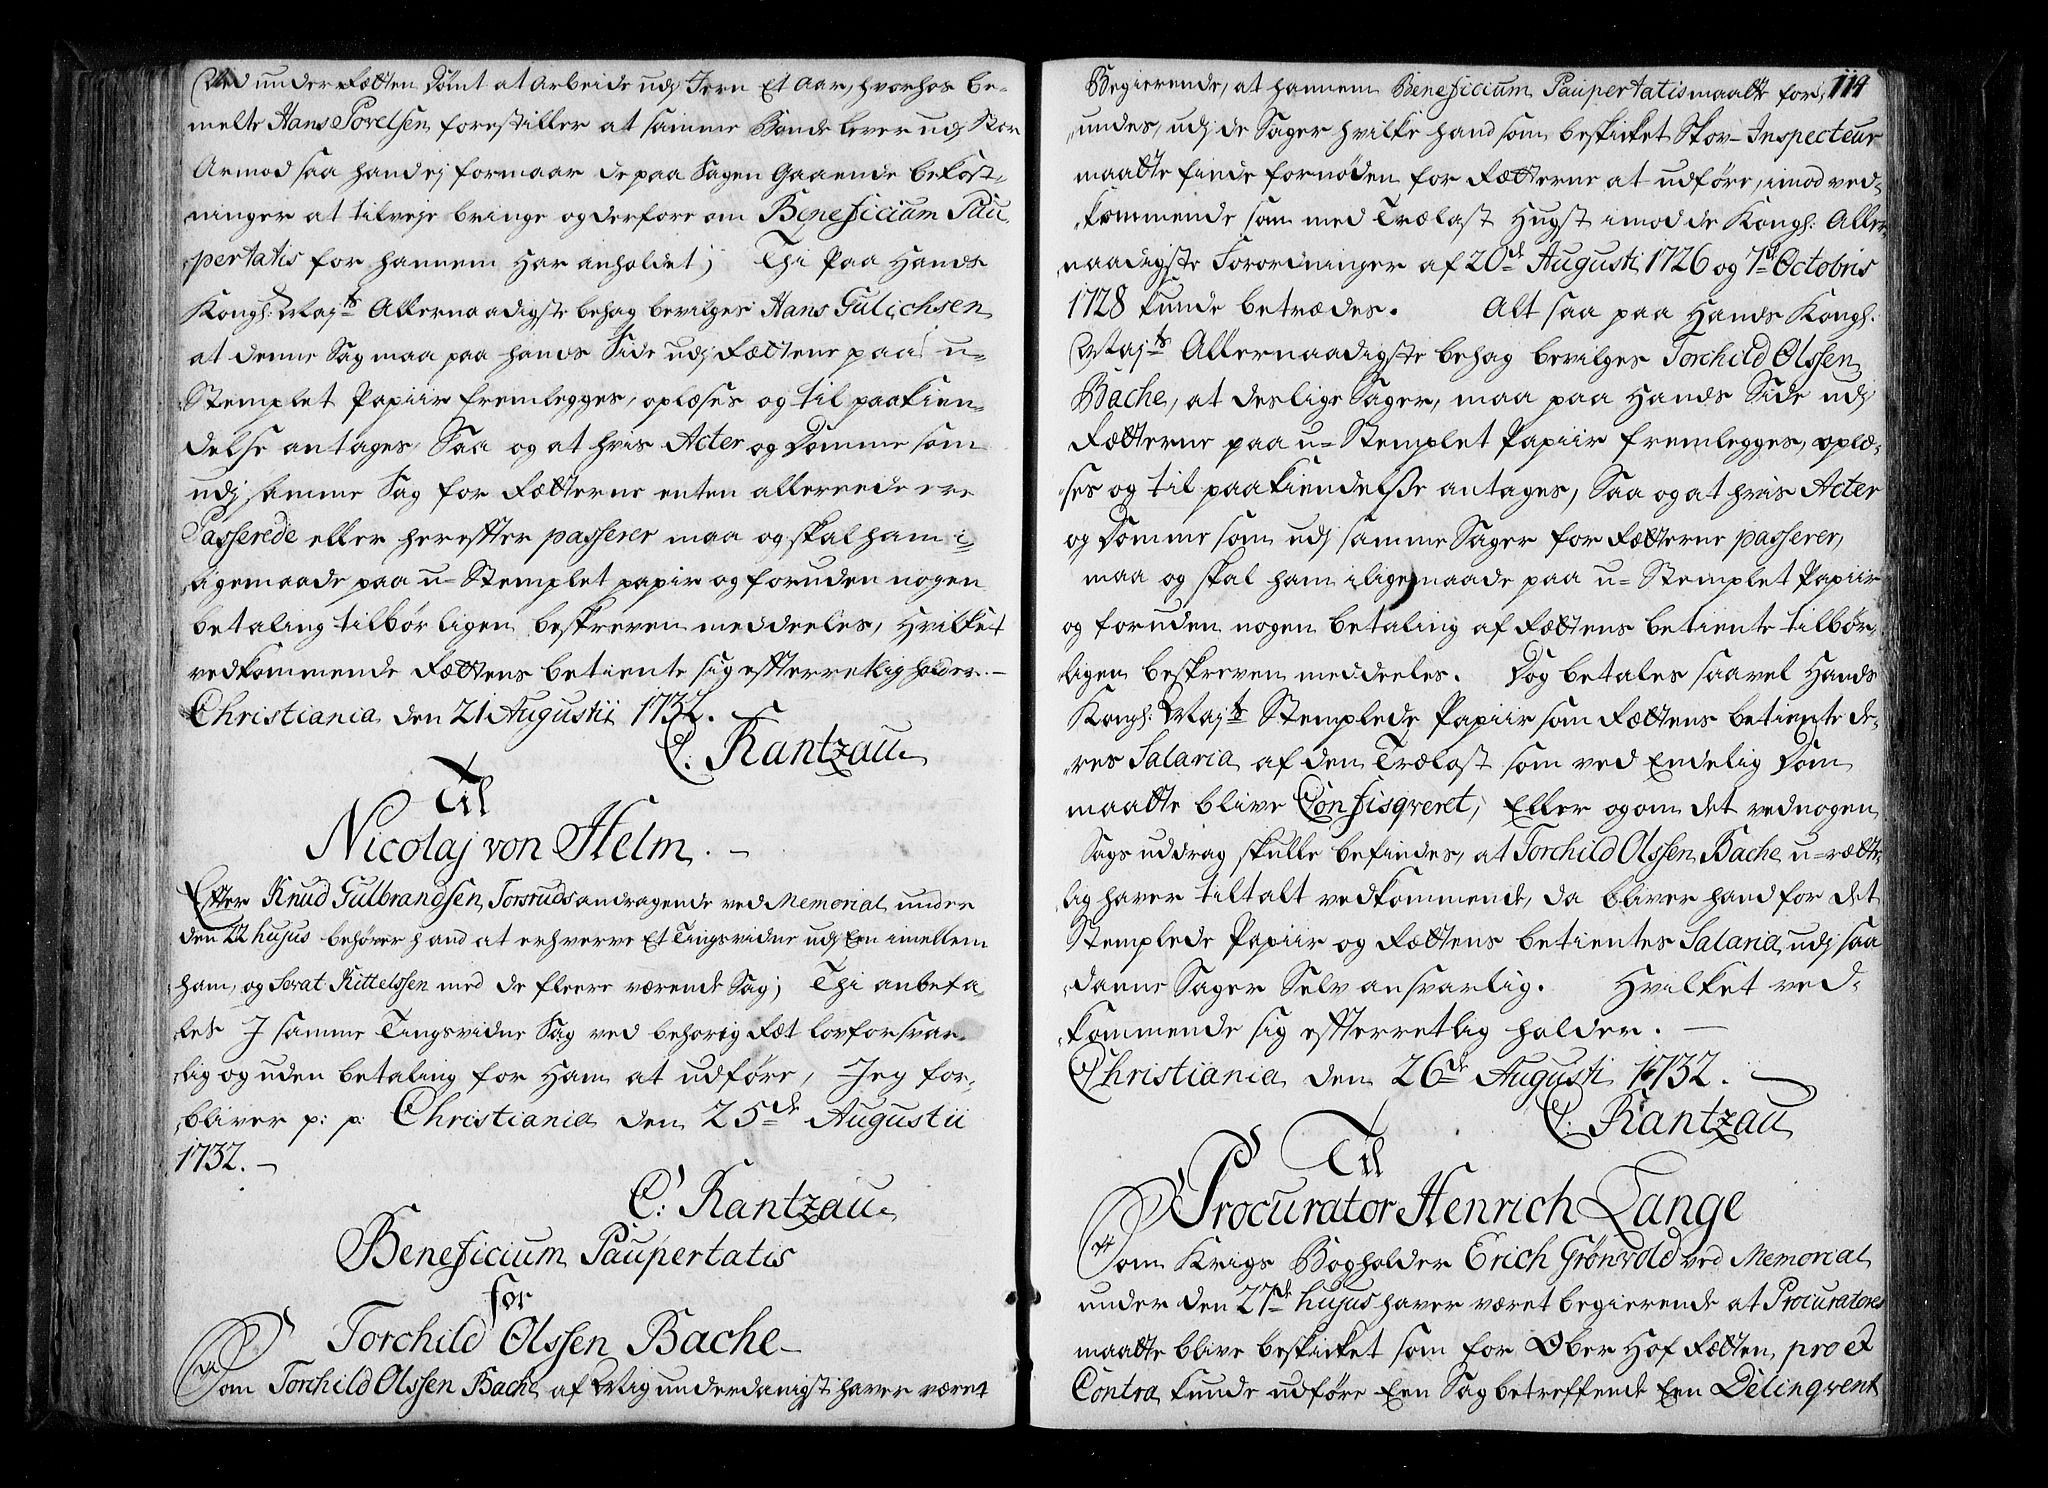 Ved under Retten Dømt at Arbeide udj Jern Et Aar, hvorhos be-
melte Hans Povelsen forestiller at samme Bonde lever udj Stor
Armod saa hand ej formaar de paa Sagen Gaaende bekost-
ninger at tilveje bringe og derfore om Beneficium Pau-
pertatis for hannem har anholdet; Thi Paa Hands
Kongl: Mayts Allernaadigste behag bevilges Hans Gulichsen
at denne Sag maa paa hands Side udj Rettene paa u-
Stemplet Papiir fremlegges, oplæses og til paakien-
delse antages, Saa og at hvis Acter og Domme som
udj samme Sag for Retterne enten allereede ere
Passerede eller herefter passerer maa og skal ham i-
ligemaade paa u-Stemplet papir og foruden nogen
betaling tilbørligen beskreven meddeeles, Hvilket
vedkommende Rettens betiente sig efterretlig holder.
Christiania den 21 Augustii 1732.
C. Rantzau
Til
Nicolaj von Helm.
Efter Knud Gulbrandsen Torsruds andragende ved Memorial under
den 22 hujus behøver hand at erhverve Et Tingsvidne udj Een imellem
ham, og Torat Kittelssen med de fleere værende Sag; Thi anbefa-
les I samme Tingsvidne Sag ved behørig Ret lovforsvar-
lig og uden betaling for Ham at udføre, Jeg for-
bliver p: p: Christiania den 25de Augustii
1732.
C: Rantzau
Beneficium Paupertatis
for
Torchild Olssen Bache
Som Torchild Olssen Bache af Mig underdanigst haver været
119
Begierende, at hannem Beneficium Paupertatis maatte for-
undes, udj de Sager hvilke hand som beskicket Skov-Inspecteur
maatte finde fornøden for Retterne at udføre, imod ved-
kommende som med Trælast Hugst imod de Kongl: Aller-
naadigste Forordninger af 20de Augusti 1726 og 7de Octobris
1728 kunde betrædes. Alt saa paa Hands Kongl:
Mayts Allernaadigste behag bevilges Torchild Olssen
Bache, at deslige Sager, maa paa Hands Side udj
Retterne paa u-Stemplet Papiir fremlegges, oplæ-
ses og til paakiendelse antages, Saa og at hvis Acter
og Domme som udj samme Sager for Retterne passerer,
maa og skal ham iligemaade paa u-Stemplet Papiir
og foruden nogen betaling af Rettens betiente tilbør-
ligen beskreven meddeeles. Dog betales saavel Hands
Kongl: Mayts Stemplede Papiir som Rettens betiente de-
res Salaria af den Trælast som ved Endelig Dom
maatte blive Confisqveret, Eller og om det ved nogen
Sags uddrag skulle befindes, at Torchild Olssen Bache u-rætte-
lig haver tiltalt vedkommende, da bliver hand for det
Stemplede Papiir og Rettens betientes Salaria udj saa
danne Sager Selv ansvarlig. Hvilket ved-
kommende sig efterretlig holder.
Christiania den 26de Augusti 1732.
C: Rantzau
Til
Procurator Henrich Lange
Som Krigs Bogholder Erich Grønvold ved Memorial
under den 27de hujus haver været begierende at Procuratores
maatte blive beskicket som for Ober Hof Retten pro et
Contra kunde udføre Een Sag betreffende Een Delinqvent